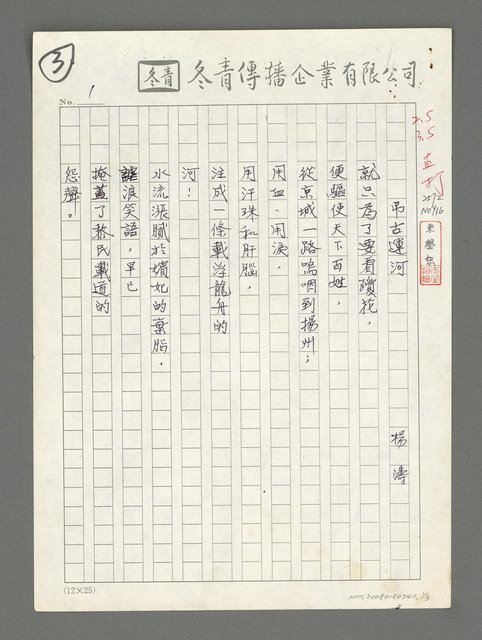 ③
冬青 冬青傳播企業有限公司
No. 1
2.5
3.5
直打
25×12
NO916
弔古運河
楊濤
就只為了要看瓊花，
便驅使天下百姓，
從京城一路嗚咽到揚州；
用血、用淚，
用汗珠和肝腦，
注成一條載浮龍舟的
河！
水流漲膩於嬪妃的棄脂，
謔浪笑語，早已
掩蓋了移民載道的
怨聲。
(12×25)